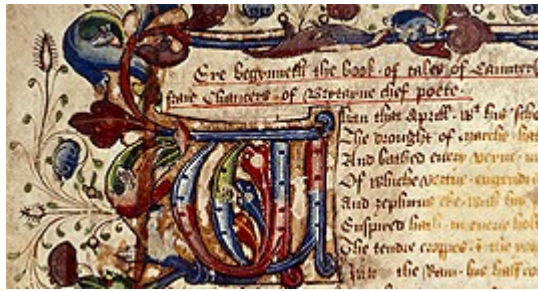 Ere begynneth the book of tales of Caunterb
frare Chancers of Brytayne chef poete
Whan that Aprell wt his scho
The drought of marche hat
And bathed euery veyne
Of whiche vertue engendr
And zephirus eke with his
Enspired hath in euery holt
The tendre croppes & the yon
Into the Ram his half co